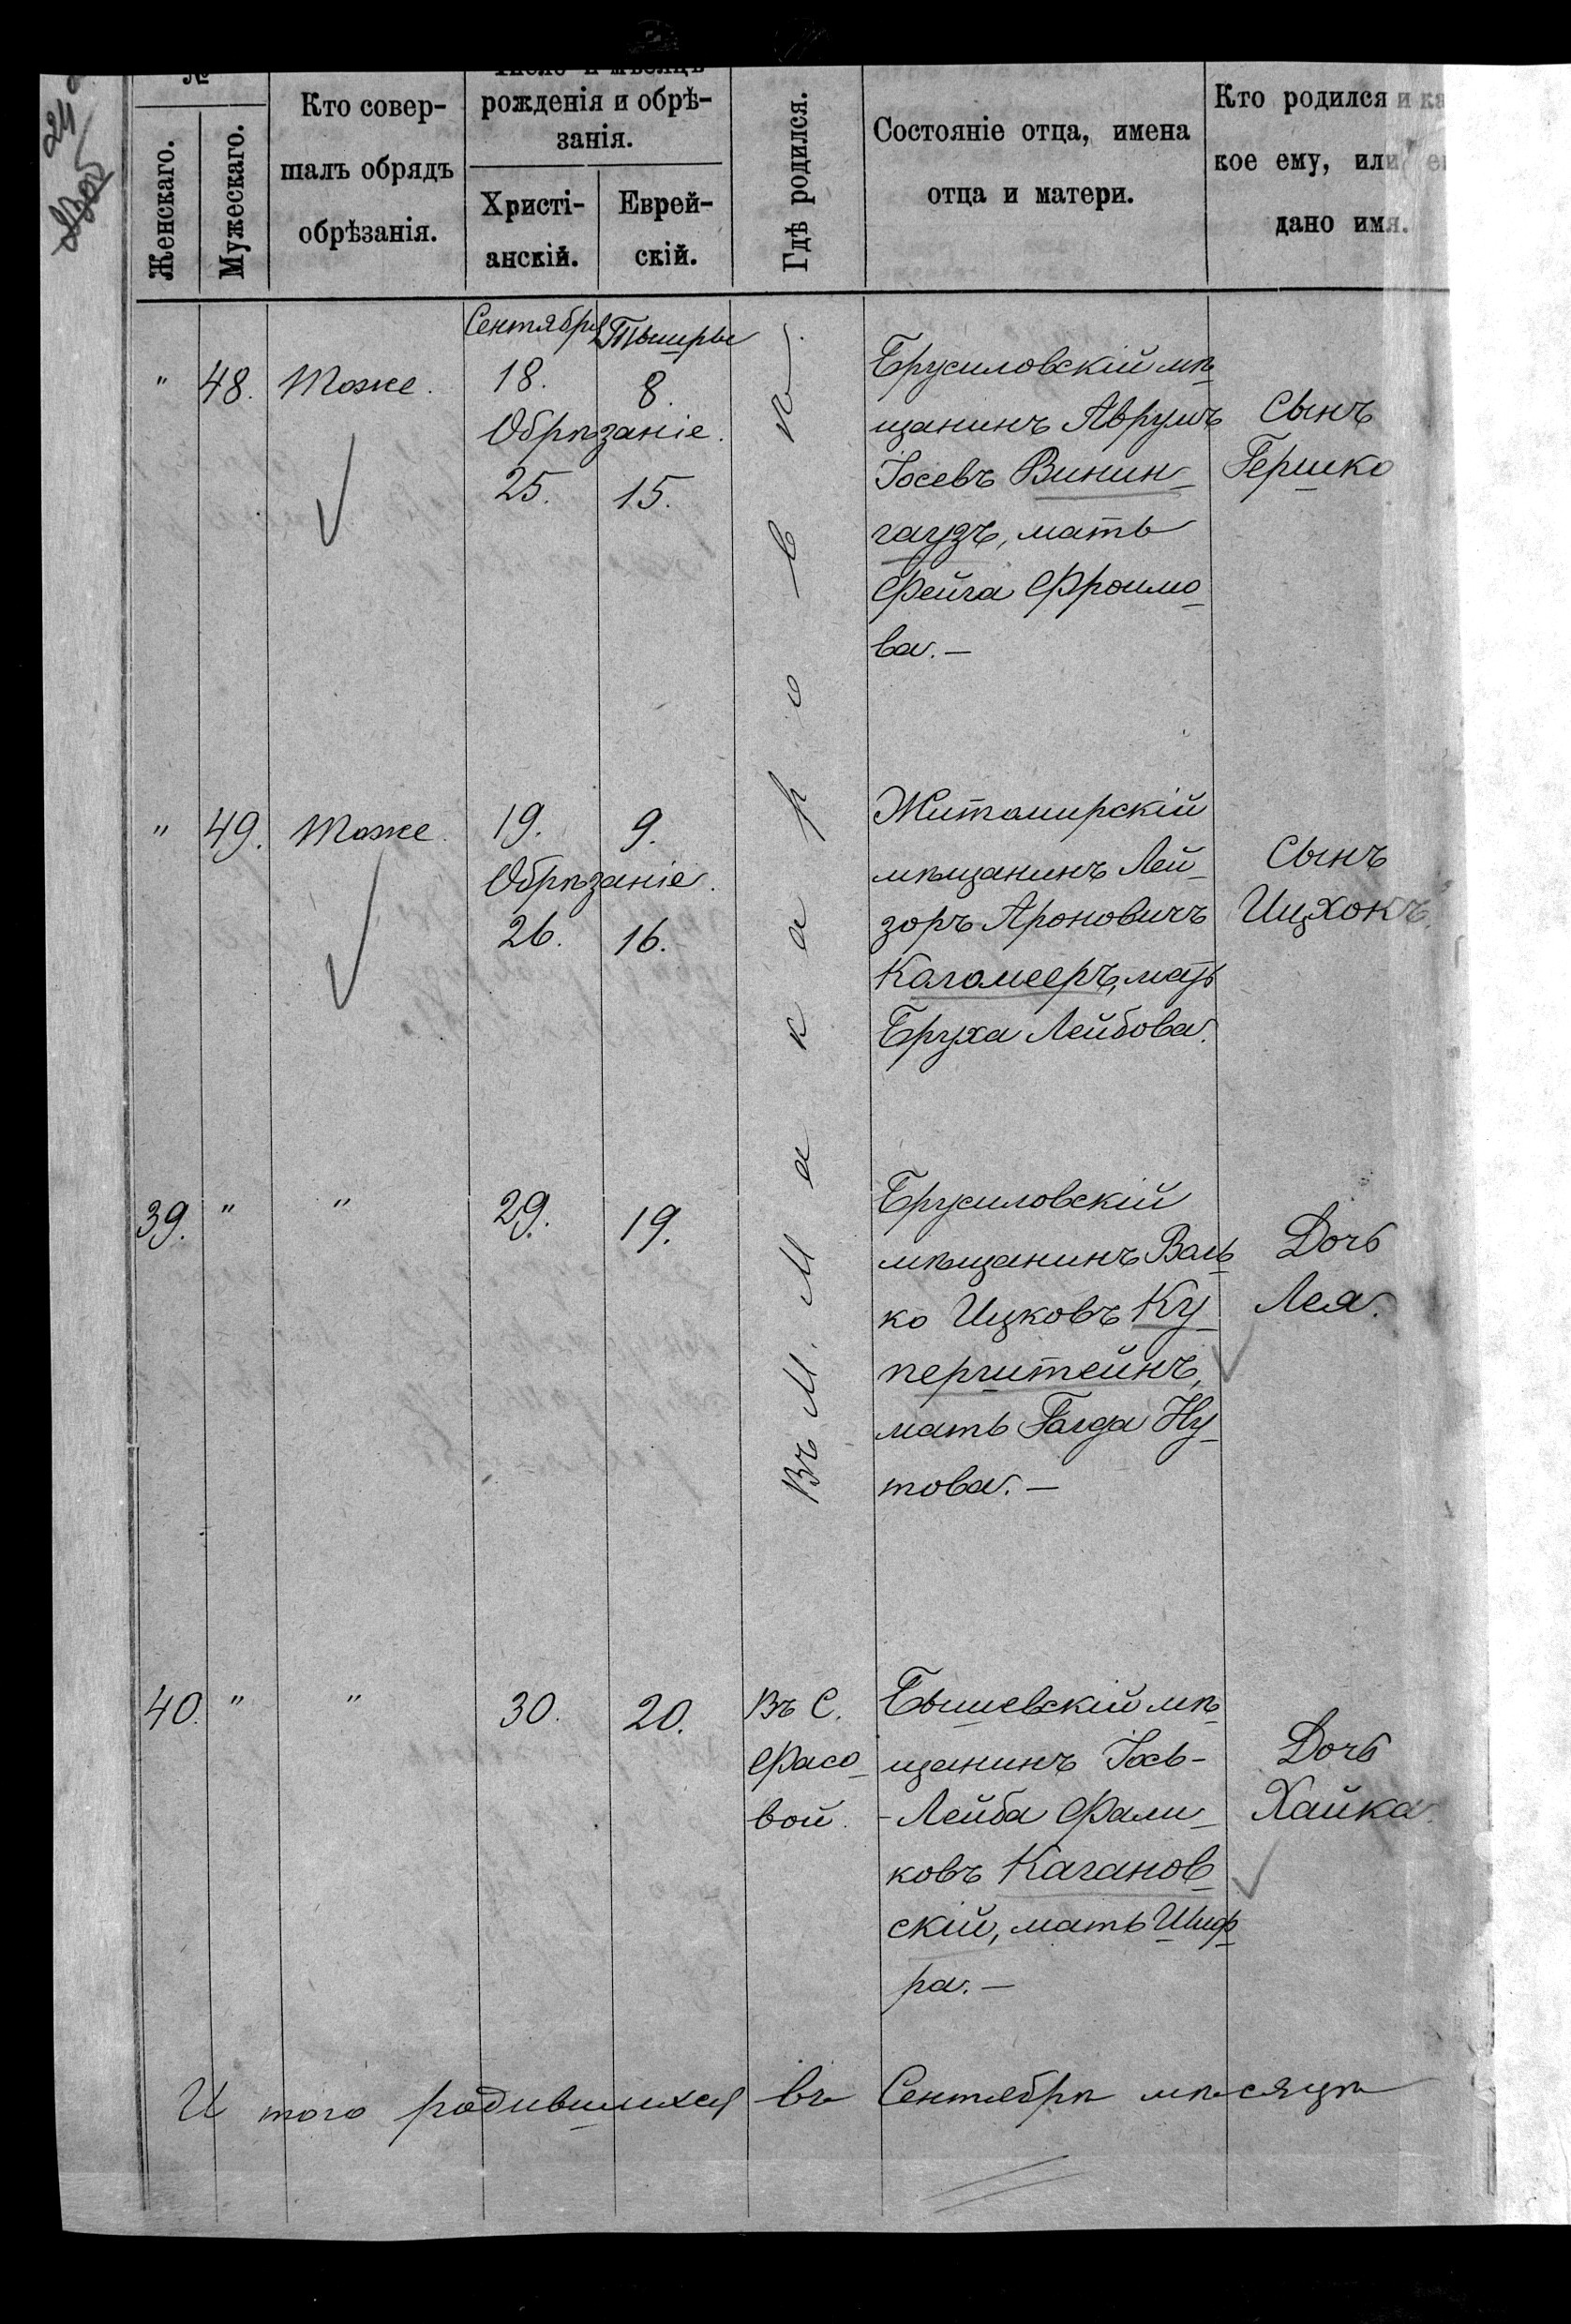 №
Женскаго.
Мужескаго.
Кто совер-
шалъ обрядъ
обрѣзанія.
Число и мѣсяцъ
рожденія и обрѣ-
занія.
Христі-
анскій.
Еврей-
скій.
Гдѣ родился.
Состояніе отца, имена
отца и матери.
Кто родился и ка
кое ему, или ей
дано имя.
Сентября Тышры
" 48. Тоже. 18. 8.
Обрѣзаніе.
25. 15.
Брусиловскій мѣ-
щанинъ Аврумъ
Іосевъ Винин-
гаузъ, мать
Фейга Фроимо-
ва. —
Сынъ
Гершко
Въ М. Макаровѣ.
" 49. Тоже. 19. 9.
Обрѣзаніе.
26. 16.
Житомирскій
мѣщанинъ Лей-
зоръ Ароновичъ
Кагомееръ, мать
Бруха Лейбова.
Сынъ
Ицхокъ.
39. " " 29. 19.
Брусиловскій
мѣщанинъ Валь-
ко Ицковъ Ку-
перштейнъ,
мать Голда Ну-
това. —
Дочь
Лея.
40. " " 30. 20.
Въ С.
Фасо-
вой.
Бышевскій мѣ-
щанинъ Іось-
-Лейба Фали-
ковъ Каганов-
скій, мать Шиф-
ра. —
Дочь
Хайка.
И того родившихся въ Сентябрѣ мѣсяцѣ